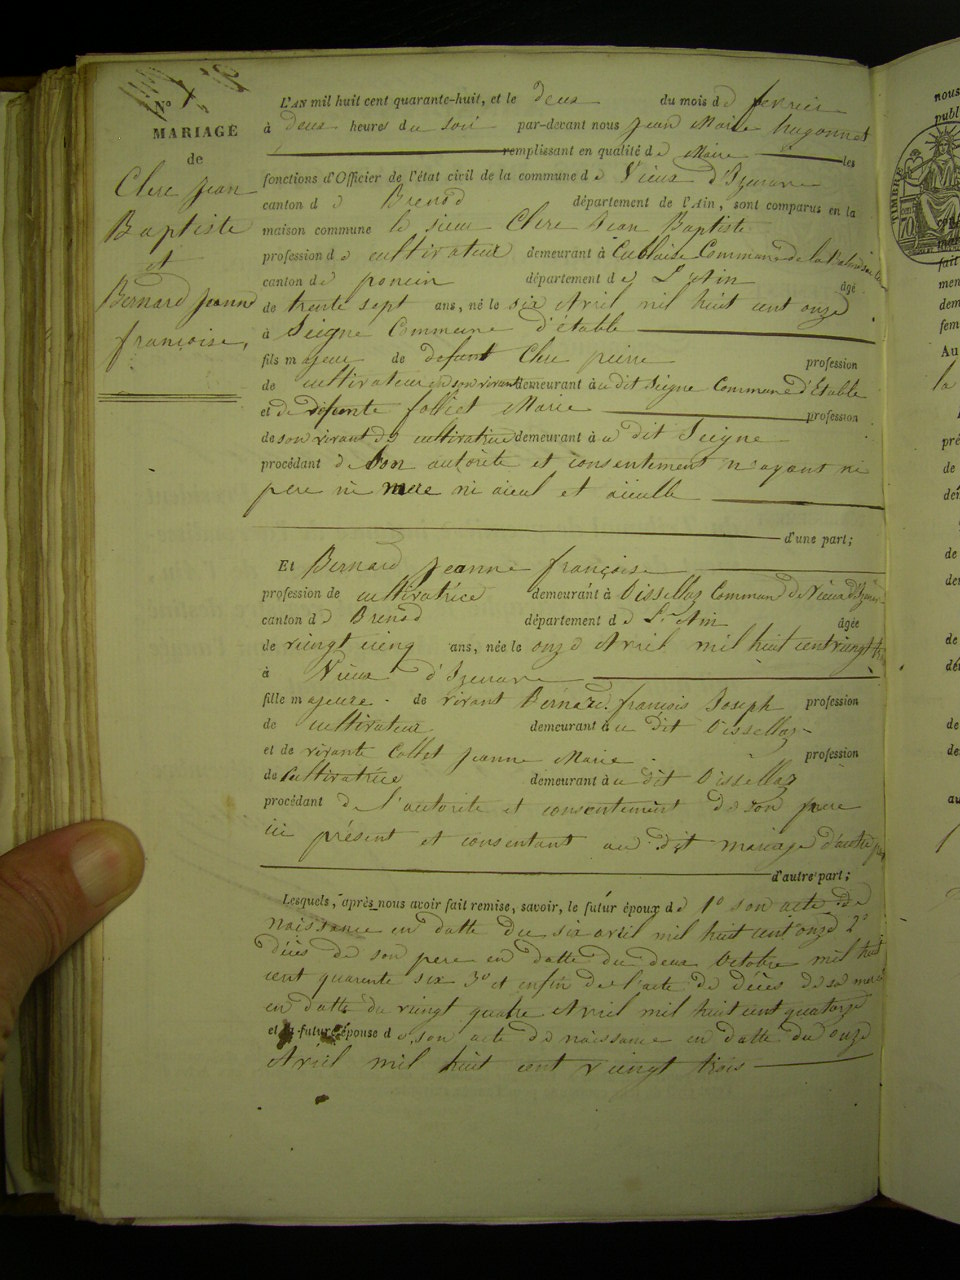 N° 1
MARIAGE
de
Clerc Jean
Baptiste
et
Bernard Jeanne
françoise,
L'AN mil huit cent quarante-huit, et le deux du mois de fevrier
à deux heures du soir par-devant nous Jean Marie hugonnet
remplissant en qualité de Maire les
fonctions d'Officier de l'état civil de la commune de Vieux d'Izenave
canton de Brenod département de l'Ain, sont comparus en la
maison commune le sieur Clerc Jean Baptiste
profession de cultivateur demeurant à Cublaise Commune de
canton de poncin département de L'Ain âgé
de trente sept ans, né le six Avril mil huit cent onze
à Seigne Commune d'étable
fils majeur de defunt Clerc pierre profession
de cultivateur en son vivant demeurant à u dit Seigne Commune d'Etable
et de defunte folliet Marie profession
de son vivant de cultivatrice demeurant à u dit Seigne
procédant de son autorite et consentement n'ayant ni
pere ni mere ni aieul et aieulle
d'une part;
Et Bernard Jeanne françoise
profession de cultivatrice demeurant à Oissellaz Commune de Vieux d'Izenave
canton de Brenod département de L'Ain âgée
de vingt cinq ans, née le onze Avril mil huit cent vingt trois
à Vieux d'Izenave
fille majeure de vivant Bernard françois Joseph profession
de cultivateur demeurant à u dit Oissellaz
et de vivante Collet Jeanne Marie profession
de Cultivatrice demeurant à u dit Oissellaz
procédant de l'autorite et consentement de son pere
ici présent et consentant au dit mariage d'autre part
d'autre part;
Lesquels, après nous avoir fait remise, savoir, le futur époux de 1° son acte de
naissance en datte du six avril mil huit cent onze 2°
décès de son pere en datte du deux Octobre mil huit
cent quarente six 3° et enfin de l'acte de décès de sa mere
en datte du vingt quatre Avril mil huit cent quatorze
et la future épouse de son acte de naissance en datte du onze
Avril mil huit cent vingt trois
nous
publ
TIMBRE
70
fait
men
dem
fem
Au
la
pré
de
dei
de
de
de
de
de
au